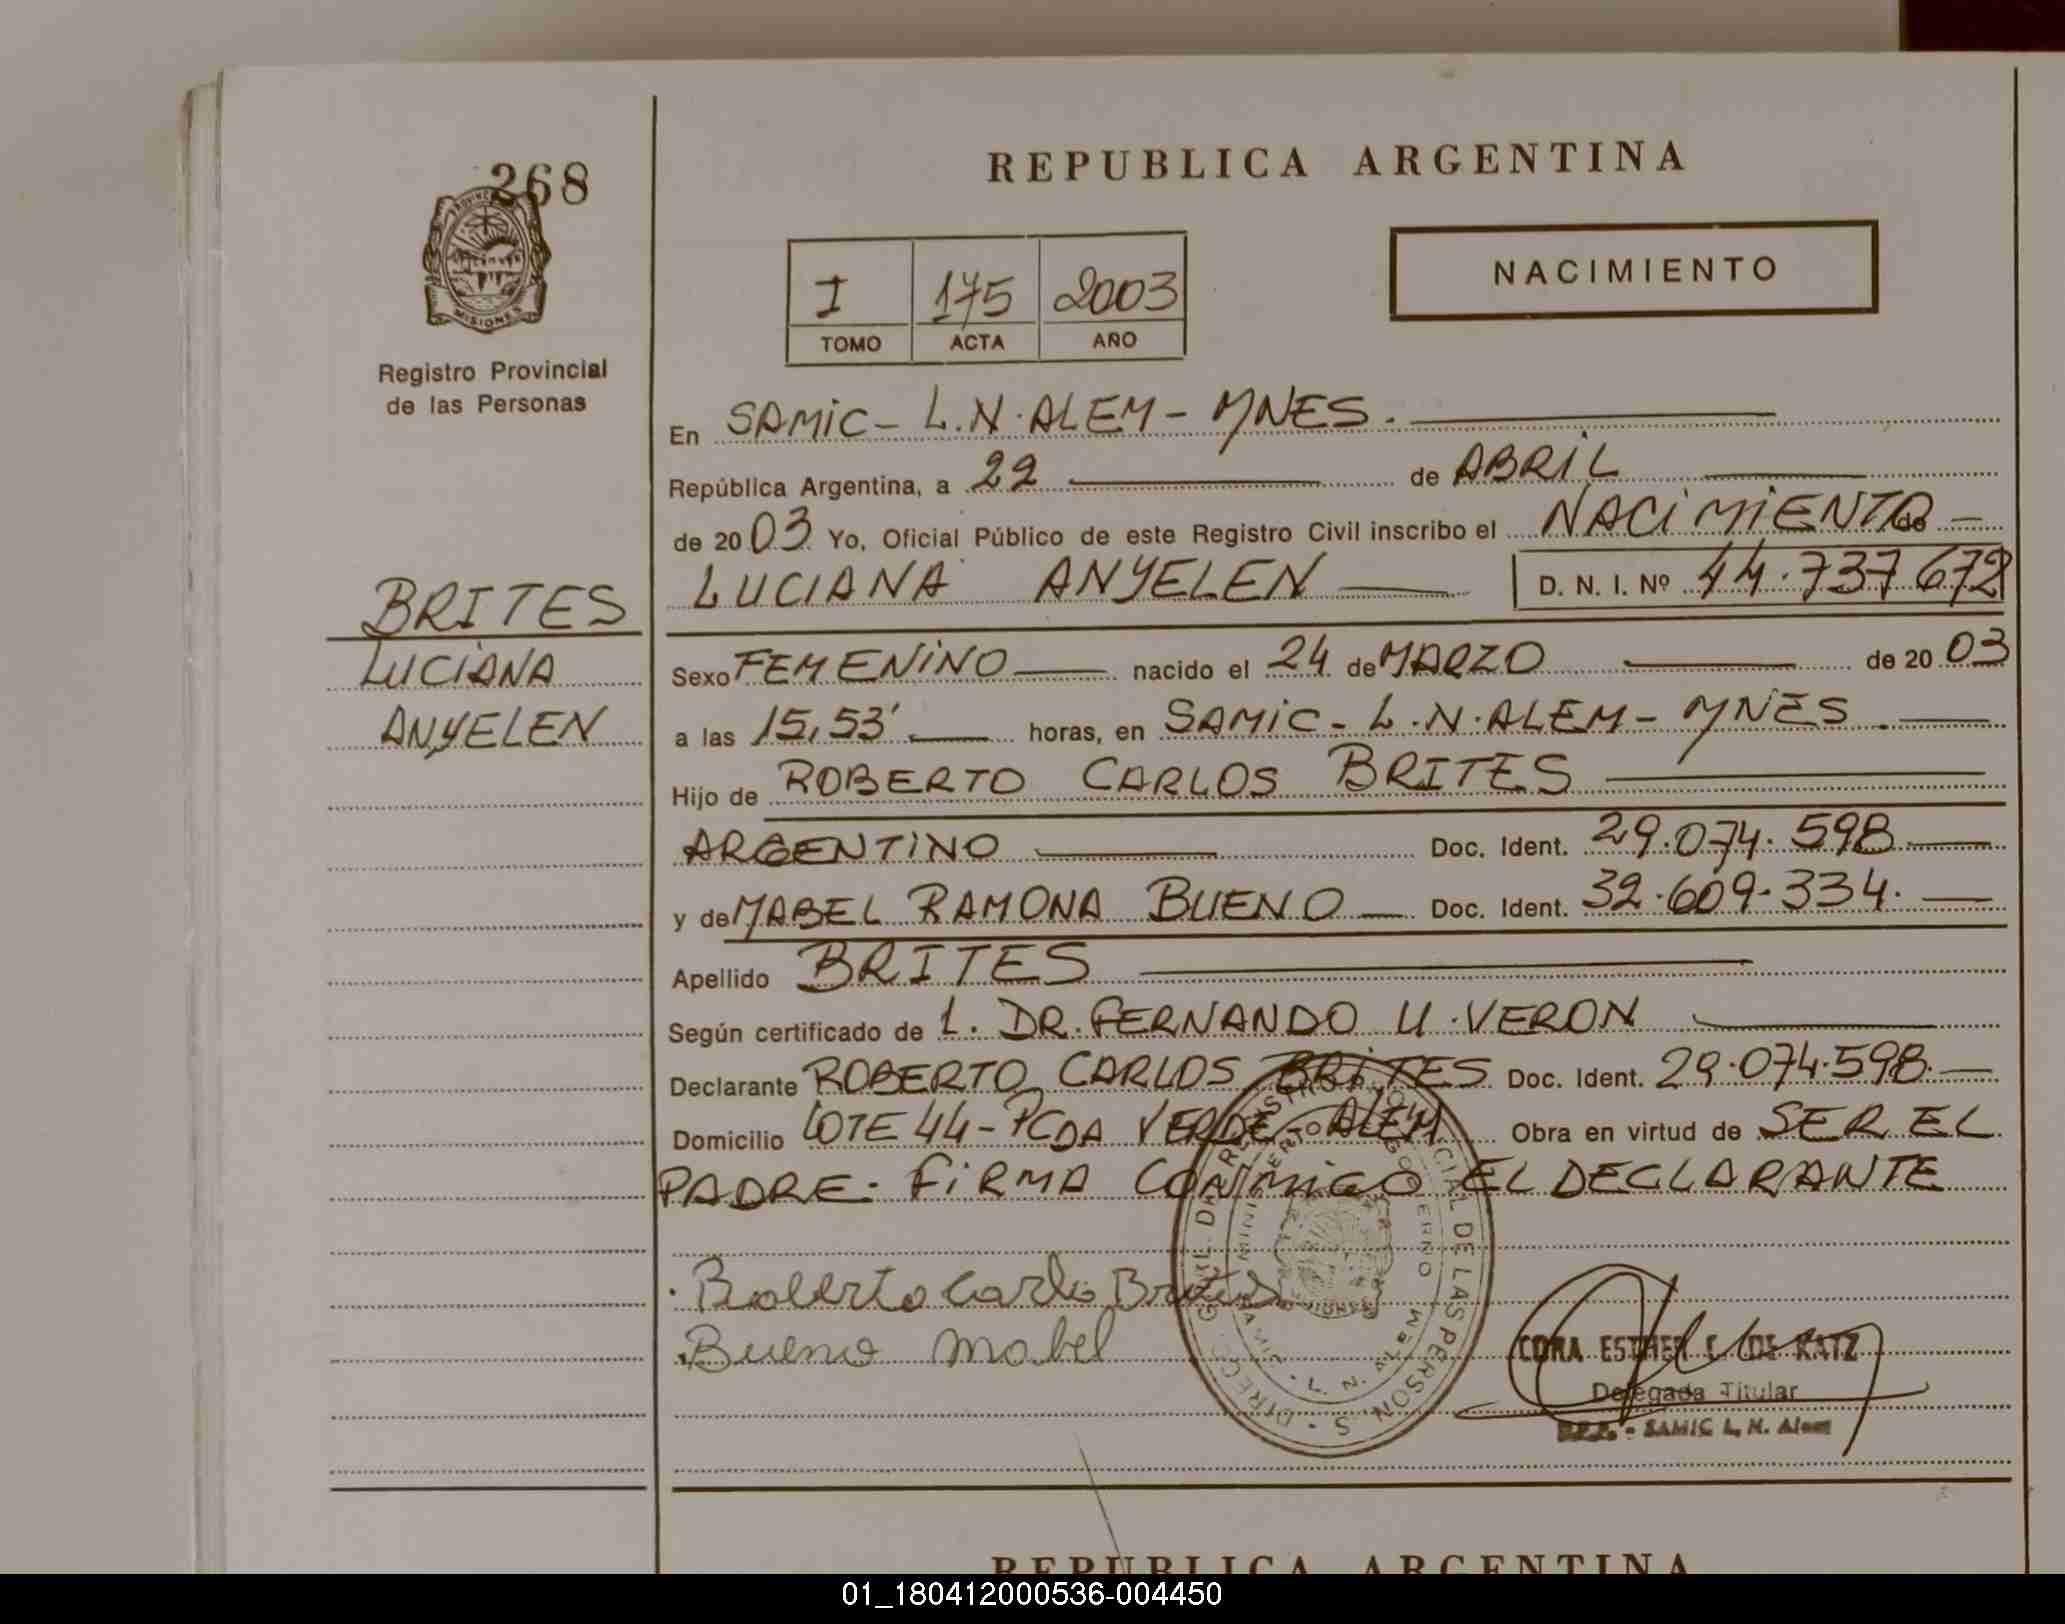 268
PROVINCIA
MISIONES
Registro Provincial
de las Personas
REPUBLICA ARGENTINA
I 175 2003
TOMO ACTA AÑO
NACIMIENTO
En SAMIC - L.N. ALEM - MNES.
República Argentina, a 22 de ABRIL
de 2003 Yo, Oficial Público de este Registro Civil inscribo el NACIMIENTO de
LUCIANA ANYELEN D. N. I. Nº 44.737672
BRITES
LUCIANA
ANYELEN
Sexo FEMENINO nacido el 24 de MARZO de 2003
a las 15,53' horas, en SAMIC - L.N. ALEM - MNES.
Hijo de ROBERTO CARLOS BRITES
ARGENTINO Doc. Ident. 29.074.598
y de MABEL RAMONA BUENO Doc. Ident. 32.609.334.
Apellido BRITES
Según certificado de 1. DR. FERNANDO U. VERON
Declarante ROBERTO CARLOS BRITES Doc. Ident. 29.074.598
Domicilio LOTE 44 - PCDA VERDE - ALEM Obra en virtud de SER EL
PADRE. FIRMA CONMIGO EL DECLARANTE
Roberto Carlo Brites
Bueno Mabel
L. N. Alem
CORA ESTHER C. DE KATZ
Delegada Titular
SAMIC L. N. Alem
REPUBLICA ARGENTINA
01_180412000536-004450